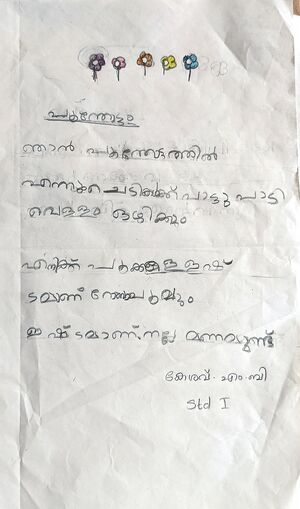 പൂന്തോട്ടം
ഞാൻ പൂന്തോട്ടത്തിൽ
എന്നുടെ ചെടികൾക്ക് പാട്ടു പാടി
വെള്ളം ഒഴിക്കും
എനിക്ക് പൂക്കളെ ഇഷ്
ടമാണ് റോസാപൂവും
ഇഷ്ടമാണ്.നല്ല മണമുണ്ട്
കേശവ്. എം.ബി
Std I